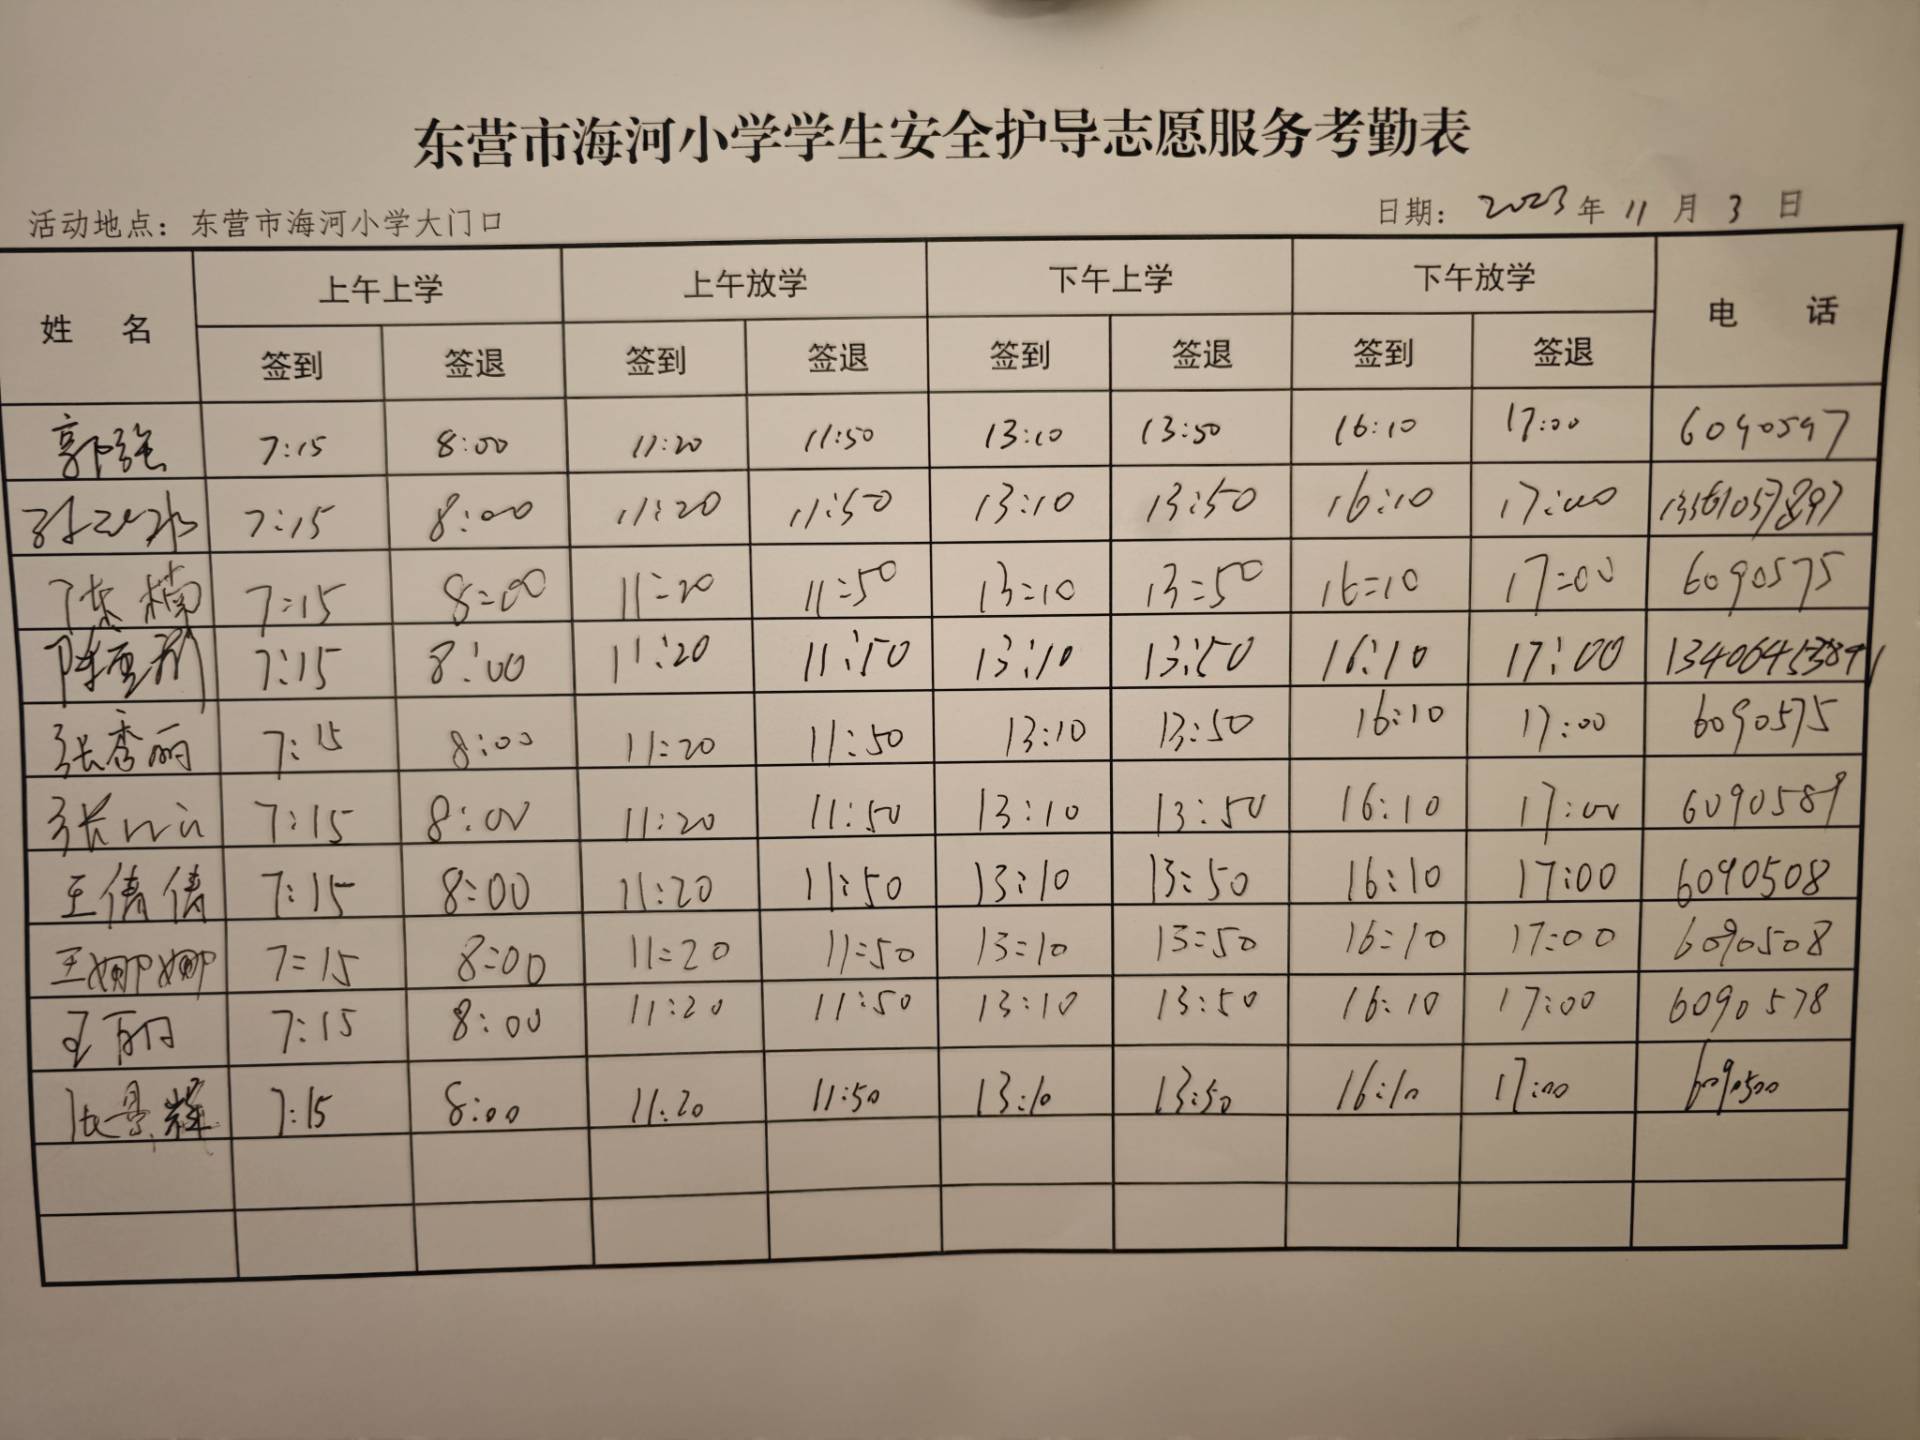 东营市海河小学学生安全护导志愿服务考勤表
活动地点：东营市海河小学大门口 日期：2023年11月3日
姓 名 上午上学 上午放学 下午上学 下午放学 电 话
签到 签退 签到 签退 签到 签退 签到 签退
郭强 7:15 8:00 11:20 11:50 13:10 13:50 16:10 17:00 6090597
7:15 8:00 11:20 11:50 13:10 13:50 16:10 17:00
陈楠 7:15 8:00 11:20 11:50 13:10 13:50 16:10 17:00 6090575
7:15 8:00 11:20 11:50 13:10 13:50 16:10 17:00
张秀丽 7:15 8:00 11:20 11:50 13:10 13:50 16:10 17:00 6090575
张 7:15 8:00 11:20 11:50 13:10 13:50 16:10 17:00 6090589
王倩倩 7:15 8:00 11:20 11:50 13:10 13:50 16:10 17:00 6090508
王娜娜 7:15 8:00 11:20 11:50 13:10 13:50 16:10 17:00 6090508
王丽 7:15 8:00 11:20 11:50 13:10 13:50 16:10 17:00 6090578
张景辉 7:15 8:00 11:20 11:50 13:10 13:50 16:10 17:00 6090500